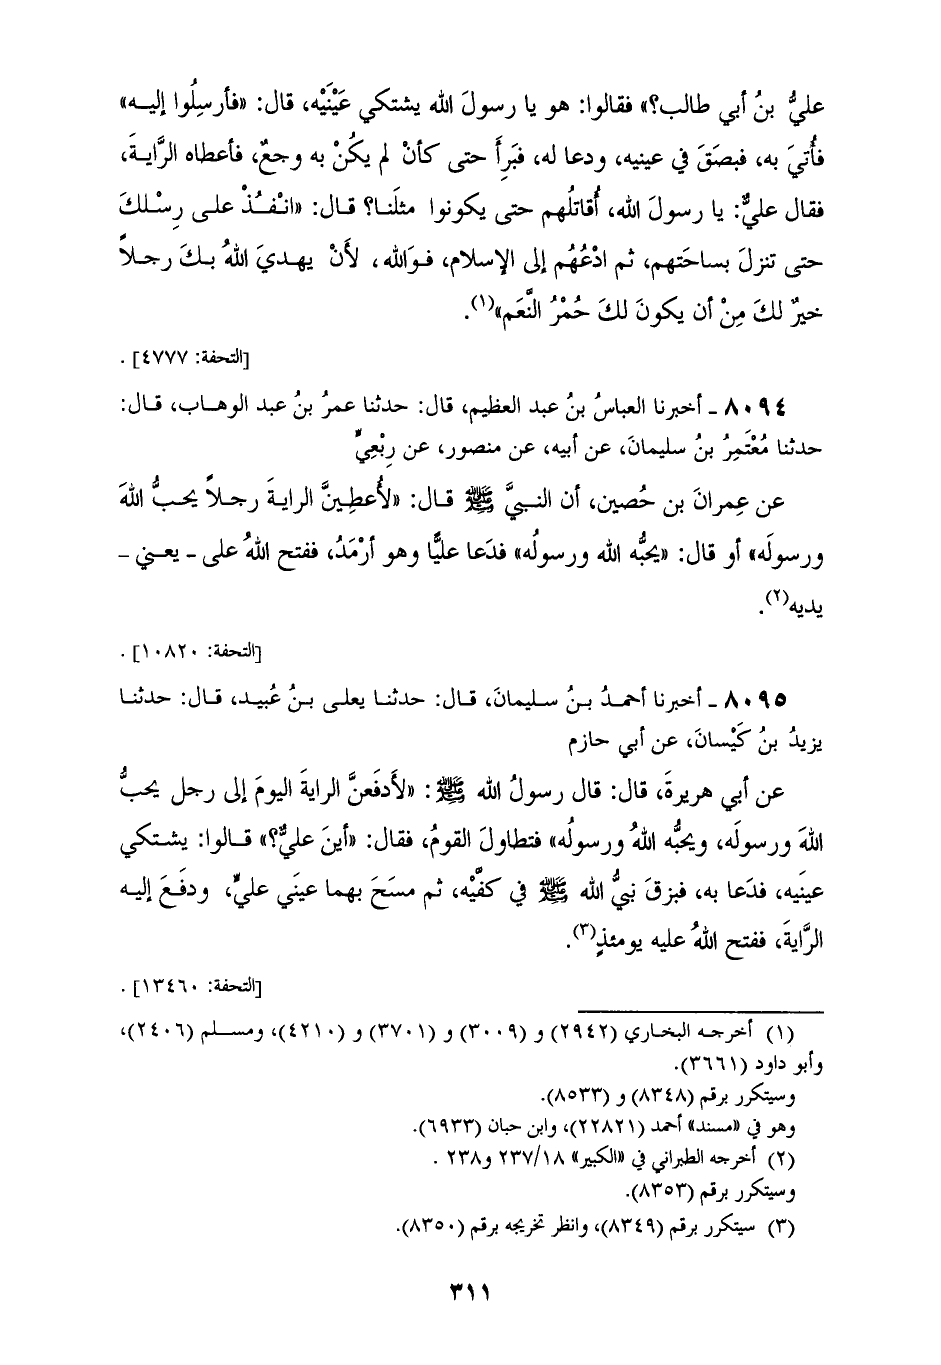 عليُّ بنُ أبي طالب؟» فقالوا: هو يا رسولَ الله يشتكي عَيْنَيْه، قال: «فأرسِلُوا إليه»
فأُتيَ به، فبصَقَ في عينيه، ودعا له، فبَرِأَ حتى كأنْ لم يكُنْ به وجعٌ، فأعطاه الرَّايةَ،
فقال عليٌّ: يا رسولَ الله، أُقاتلُهم حتى يكونوا مثلَنا؟ قال: «انْفُذْ على رِسْلكَ
حتى تنزلَ بساحَتهم، ثم ادْعُهُم إلى الإسلام، فوَالله، لأَنْ يهديَ اللهُ بكَ رجلاً
خيرٌ لكَ مِنْ أن يكونَ لكَ حُمْرُ النَّعَم»(١).
[التحفة: ٤٧٧٧] .
٨٠٩٤ ـ أخبرنا العباسُ بنُ عبد العظيم، قال: حدثنا عمرُ بنُ عبد الوهاب، قال:
حدثنا مُعْتَمِرُ بنُ سليمانَ، عن أبيه، عن منصور، عن رِبْعِيٍّ
عن عِمرانَ بن حُصين، أن النبيَّ ﷺ قال: «لأُعطِينَّ الرايةَ رجلاً يحبُّ اللهَ
ورسولَه» أو قال: «يحبُّه الله ورسولُه» فدَعا عليًّا وهو أرْمَدُ، ففتح اللهُ على ـ يعني ـ
يديه(٢).
[التحفة: ١٠٨٢٠] .
٨٠٩٥ ـ أخبرنا أحمدُ بنُ سليمانَ، قال: حدثنا يعلى بنُ عُبيد، قال: حدثنا
يزيدُ بنُ كَيْسانَ، عن أبي حازم
عن أبي هريرةَ، قال: قال رسولُ الله ﷺ: «لأَدفَعنَّ الرايةَ اليومَ إلى رجل يحبُّ
اللهَ ورسولَه، ويحبُّه اللهُ ورسولُه» فتطاولَ القومُ، فقال: «أينَ عليٌّ؟» قالوا: يشتكي
عينَيه، فدَعا به، فبزقَ نبيُّ الله ﷺ في كفَّيْه، ثم مسَحَ بهما عينَي عليٍّ، ودفَعَ إليه
الرَّايةَ، ففتح اللهُ عليه يومئذٍ(٣).
[التحفة: ١٣٤٦٠] .
(١) أخرجه البخاري (٢٩٤٢) و (٣٠٠٩) و (٣٧٠١) و (٤٢١٠)، ومسلم (٢٤٠٦)،
وأبو داود (٣٦٦١).
وسيتكرر برقم (٨٣٤٨) و (٨٥٣٣).
وهو في «مسند» أحمد (٢٢٨٢١)، وابن حبان (٦٩٣٣).
(٢) أخرجه الطبراني في «الكبير» ٢٣٧/١٨ و٢٣٨ .
وسيتكرر برقم (٨٣٥٣).
(٣) سيتكرر برقم (٨٣٤٩)، وانظر تخريجه برقم (٨٣٥٠).
٣١١